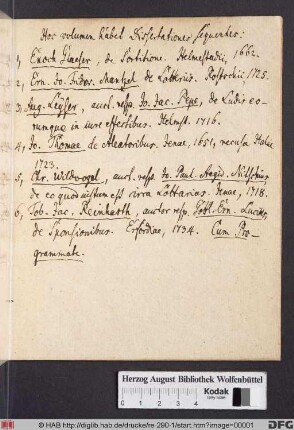 Hoc volumen habet Dissertationes sequentes:
1, Enoch Glaeser, de Sortitione. Helmestadii, 1662.
2, Ern. Jo. Frider. Mantzel de Lotteriis. Rostochii 1725.
3, Aug. Leyser, auct. resp. Jo. Jac. Pape, de Ludis eorumque in iure effectibus. Helmst. 1716.
4, Jo. Thomae de Aleatoribus. Jenae, 1651, recusa Halae
1723.
5, Chr. Wildvogel, auct. resp. Jo. Paul.
de eo quod iustum est circa Lottarias. Jenae, 1718.
6, Tob. Jac. Reinharth, auctor resp. Ern.
de Sponsionibus. Erfordiae, 1734. Cum Pro-
grammate.
Herzog August Bibliothek Wolfenbüttel
Kodak
© HAB http://diglib.hab.de/drucke/re-290-1/start.htm?image=00001
DFG